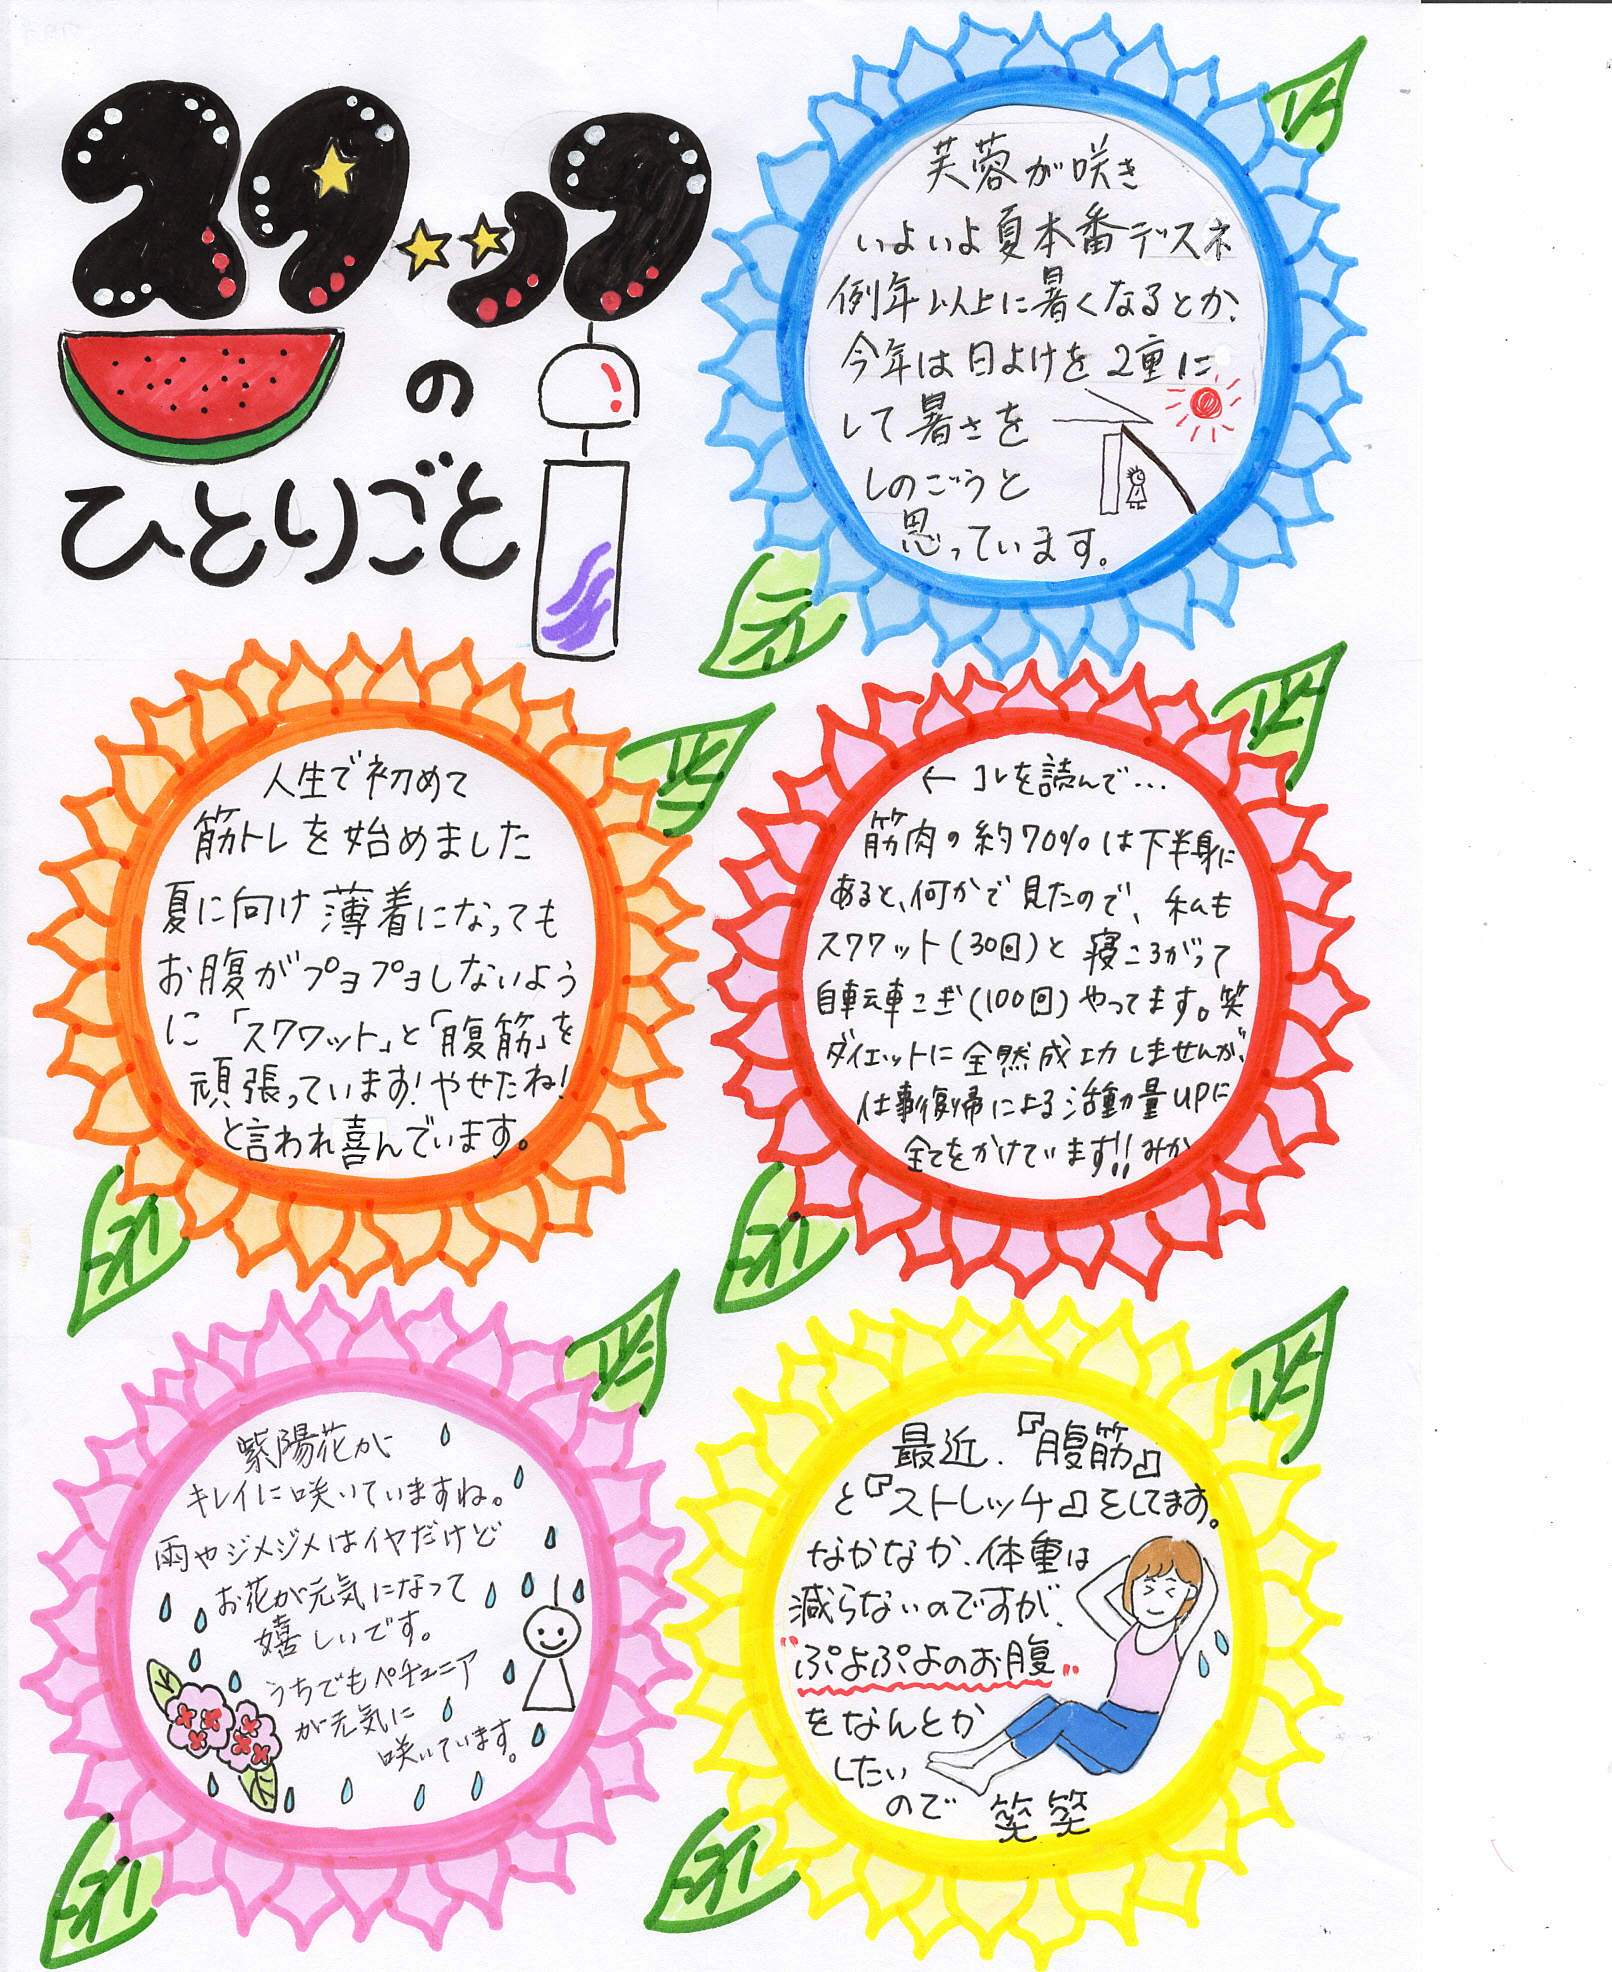 スタッフ
の
ひとりごと
芙蓉が咲き
いよいよ夏本番デスネ
例年以上に暑くなるとか、
今年は日よけを2重に
して暑さを
しのごうと
思っています。
人生で初めて
筋トレを始めました
夏に向け薄着になっても
お腹がプヨプヨしないよう
に「スクワット」と「腹筋」を
頑張っています!やせたね!
と言われ喜んでいます。
← コレを読んで…
筋肉の約70%は下半身に
あると、何かで見たので、私も
スクワット(30回)と寝ころがって
自転車こぎ(100回)やってます。笑
ダイエットに全然成功しませんが、
仕事復帰による活動量UPに
全てをかけています!!みか
紫陽花が
キレイに咲いていますね。
雨やジメジメはイヤだけど
お花が元気になって
嬉しいです。
うちでもペチュニア
が元気に
咲いています。
最近、『腹筋』
と『ストレッチ』をしてます。
なかなか、体重は
減らないのですが、
"ぷよぷよのお腹"
をなんとか
したい
ので 笑笑